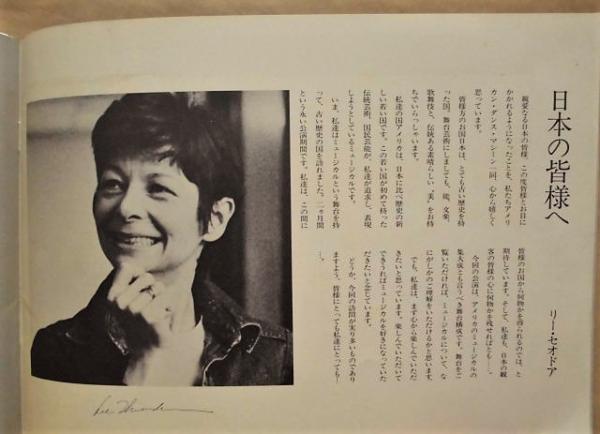 日本の皆様へ
リー・セオドア
親愛なる日本の皆様、この度皆様とお目に
かかれるようになったことを、私たちアメリ
カン・ダンス・マシーン一同、心から嬉しく
思っています。
皆様方のお国日本は、とても古い歴史を持
った国、舞台芸術にしましても、能、文楽、
歌舞伎と、伝統ある素晴らしい"美"をお持
ちでいらっしゃいます。
私達の国アメリカは、日本に比べ歴史の新
しい若い国です。この若い国が初めて持った
伝統芸術、国民芸能が、私達が追求し、表現
しようとしているミュージカルです。
いま、私達はミュージカルという舞台を持
って、古い歴史の国を訪れました。二ヶ月間
という永い公演期間です。私達は、この間に
皆様のお国から何物かを得られるのでは、と
期待しています。そして、私達も、日本の観
客の皆様の心に何物かを残せればとも――。
今回の公演は、アメリカのミュージカルの
集大成とも言うべき舞台構成です。舞台をご
覧いただければ、ミュージカルについて、な
にがしかのご理解をいただけるかと思います。
でも、私達は、まず心から楽しんでいただ
きたいと思っています。楽しんでいただいて
できうればミュージカルを好きになっていた
だきたいと念じています。
どうか、今回の訪問が実り多いものであり
ますよう、皆様にとっても私達にとっても―
―。